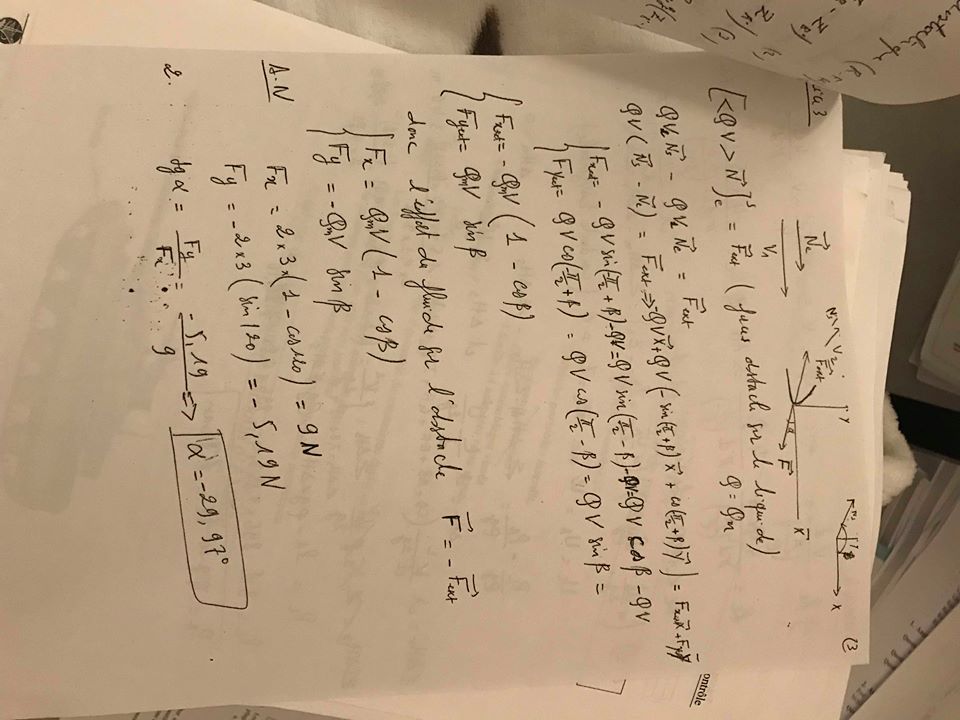 (3
N⃗e
V1
Y
X⃗
F⃗ext
F⃗
α
β
x
[<QV> N⃗]ˢₑ = F⃗ext ( obstacle sur le liquide)
Q = Qm
QVs N⃗s - QVe N⃗e = F⃗ext
QV( N⃗s - N⃗e) = F⃗ext => -QVX⃗ + QV(-sin(π/2+β)X⃗ + cos(π/2+β)Y⃗) = FxextX⃗ + FyextY⃗
{ Fxext = - QV sin(π/2+β) - QV = QV sin(π/2-β) - QV = QV cosβ - QV
{ Fyext = QV cos(π/2+β) = QV cos(π/2-β) = QV sinβ =
{ Fxext = - QmV (1 - cosβ)
{ Fyext = QmV sinβ
donc l'effort du fluide sur l'obstacle F⃗ = - F⃗ext
{ Fx = QmV (1 - cosβ)
{ Fy = - QmV sinβ
A.N
Fx = 2x3x(1 - cos120) = 9N
Fy = -2x3(sin120) = -5,19N
2. tgα = Fy/Fx = -5,19/9 => α = -29,97°
ontrôle